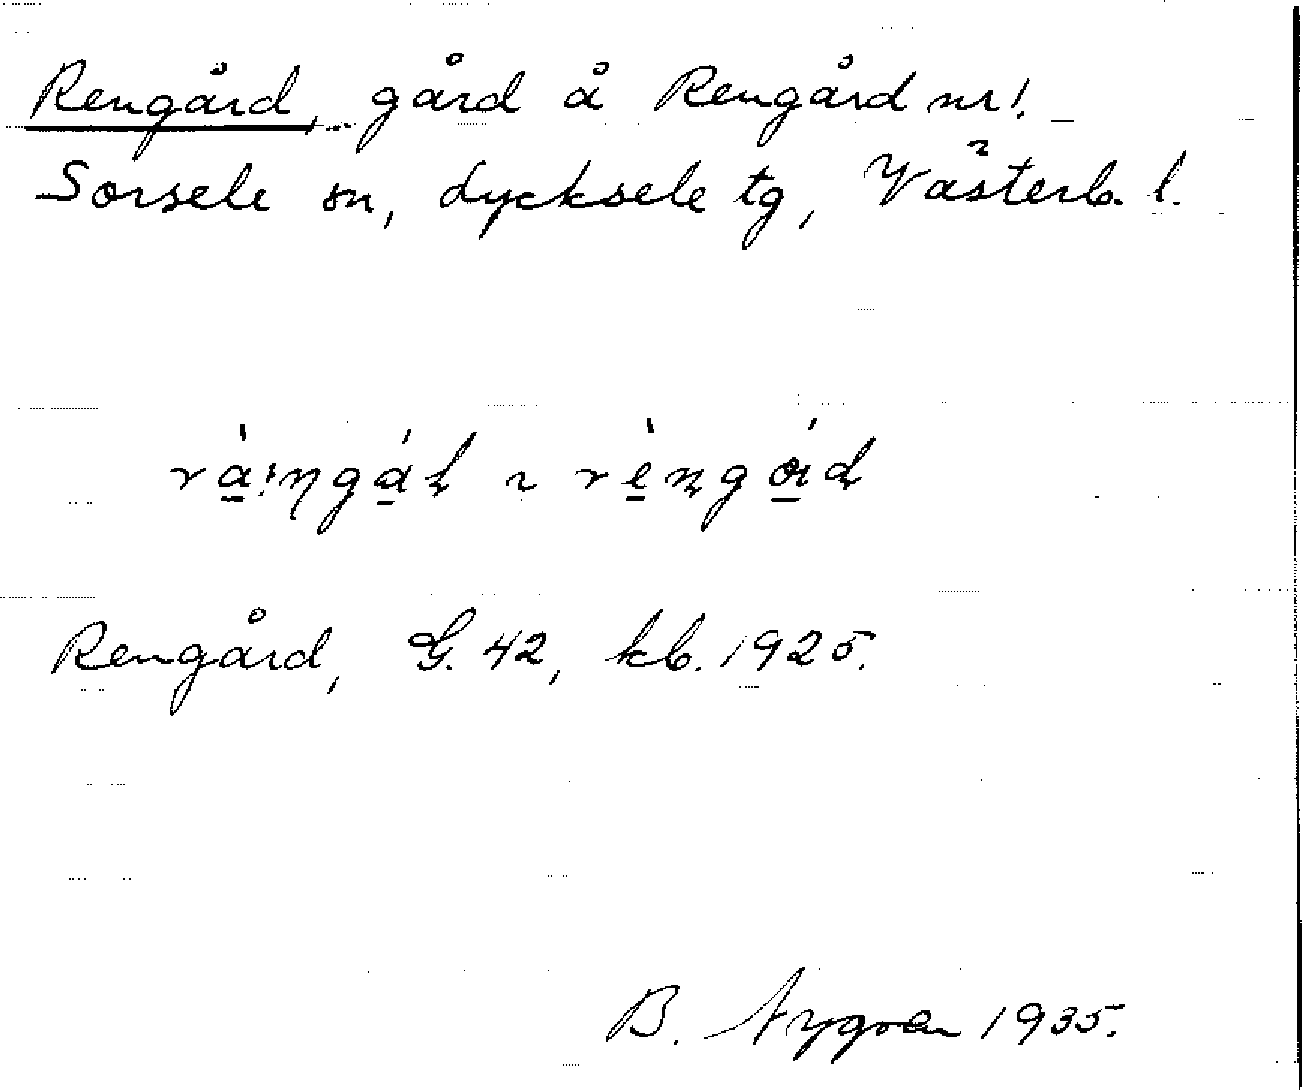 Rengård, gård å Rengård nr 1.
Sorsele sn, Lycksele tg, Västerb. l.
Rengård, G. 42, kb. 1925.
B. Nygren 1935.